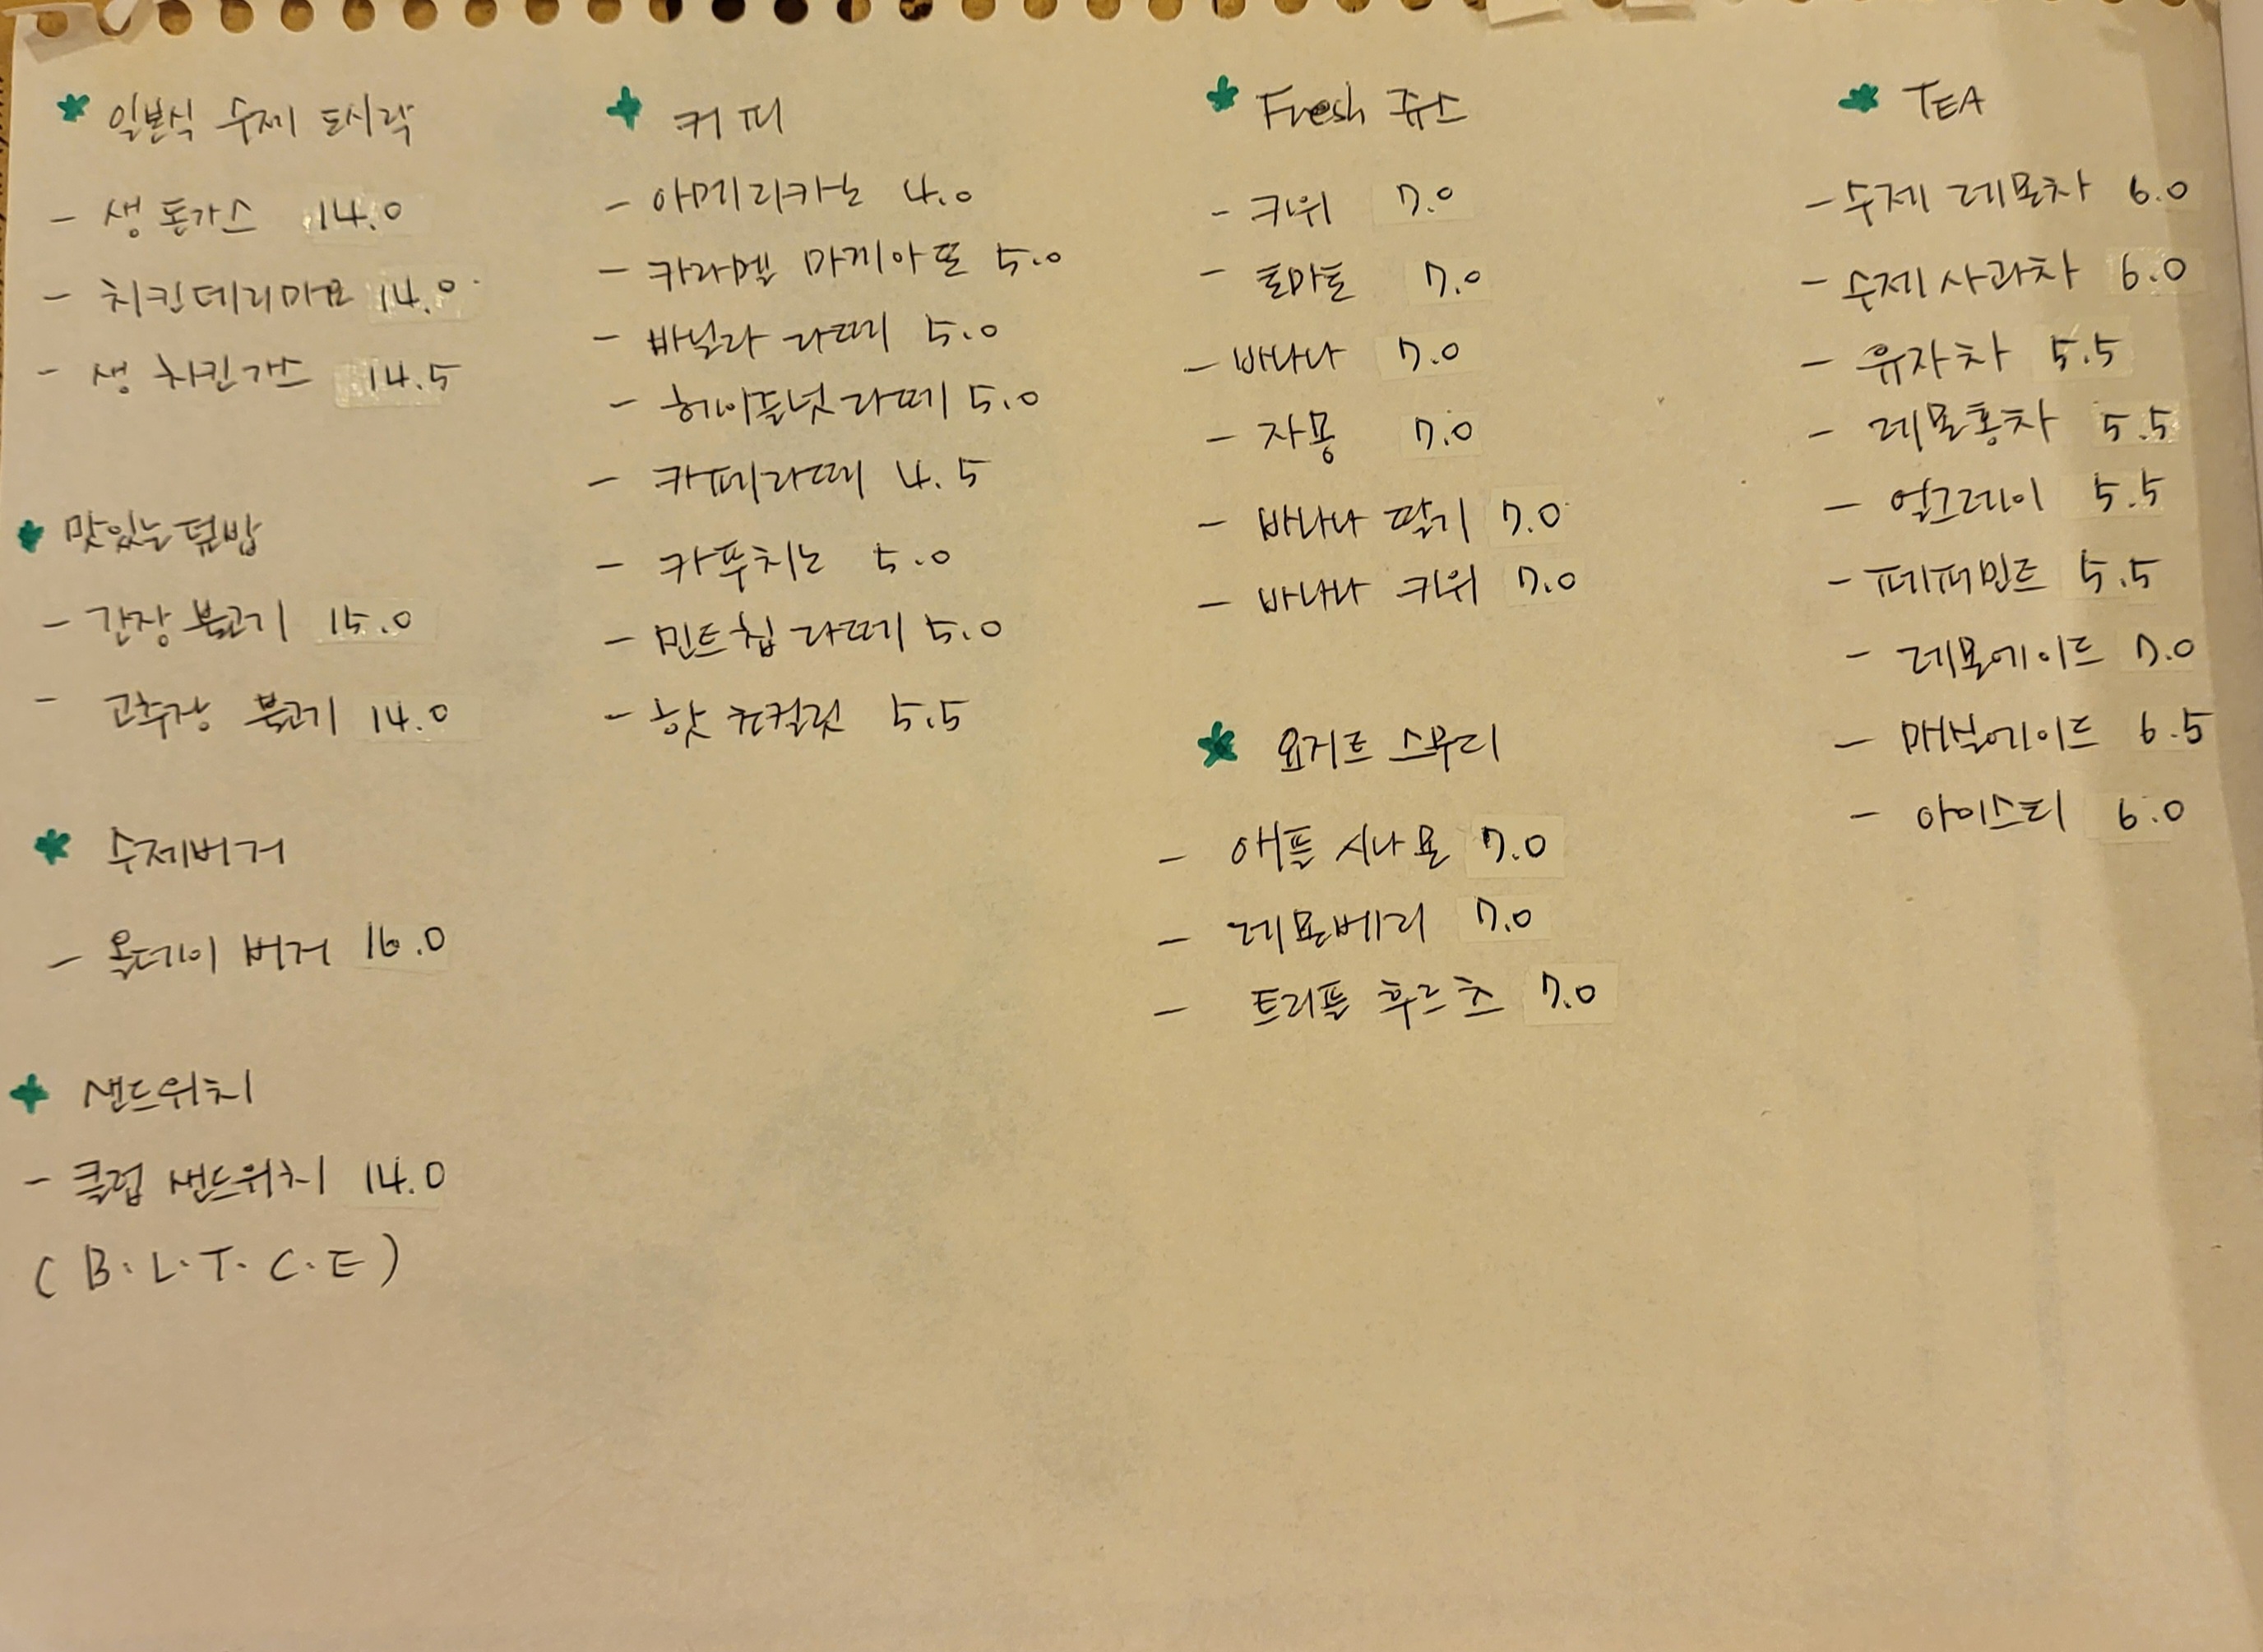 일본식 수제 도시락
- 생 돈가스 14.0
- 치킨데리마요 14.0
- 생 치킨가스 14.5
맛있는 덮밥
- 간장 불고기 15.0
- 고추장 불고기 14.0
수제버거
- 올데이 버거 16.0
샌드위치
- 클럽 샌드위치 14.0
(B.L.T.C.E)
커피
- 아메리카노 4.0
- 카라멜 마끼아또 5.0
- 바닐라 라떼 5.0
- 헤이즐넛 라떼 5.0
- 카페라떼 4.5
- 카푸치노 5.0
- 민트칩 라떼 5.0
- 핫 쵸컬릿 5.5
Fresh 쥬스
- 키위 7.0
- 토마토 7.0
- 바나나 7.0
- 자몽 7.0
- 바나나 딸기 7.0
- 바나나 키위 7.0
요거트 스무디
- 애플 시나몬 7.0
- 레몬베리 7.0
- 트리플 후르츠 7.0
TEA
- 수제 레몬차 6.0
- 수제 사과차 6.0
- 유자차 5.5
- 레몬홍차 5.5
- 얼그레이 5.5
- 페퍼민트 5.5
- 레몬에이드 7.0
- 매실에이드 6.5
- 아이스티 6.0